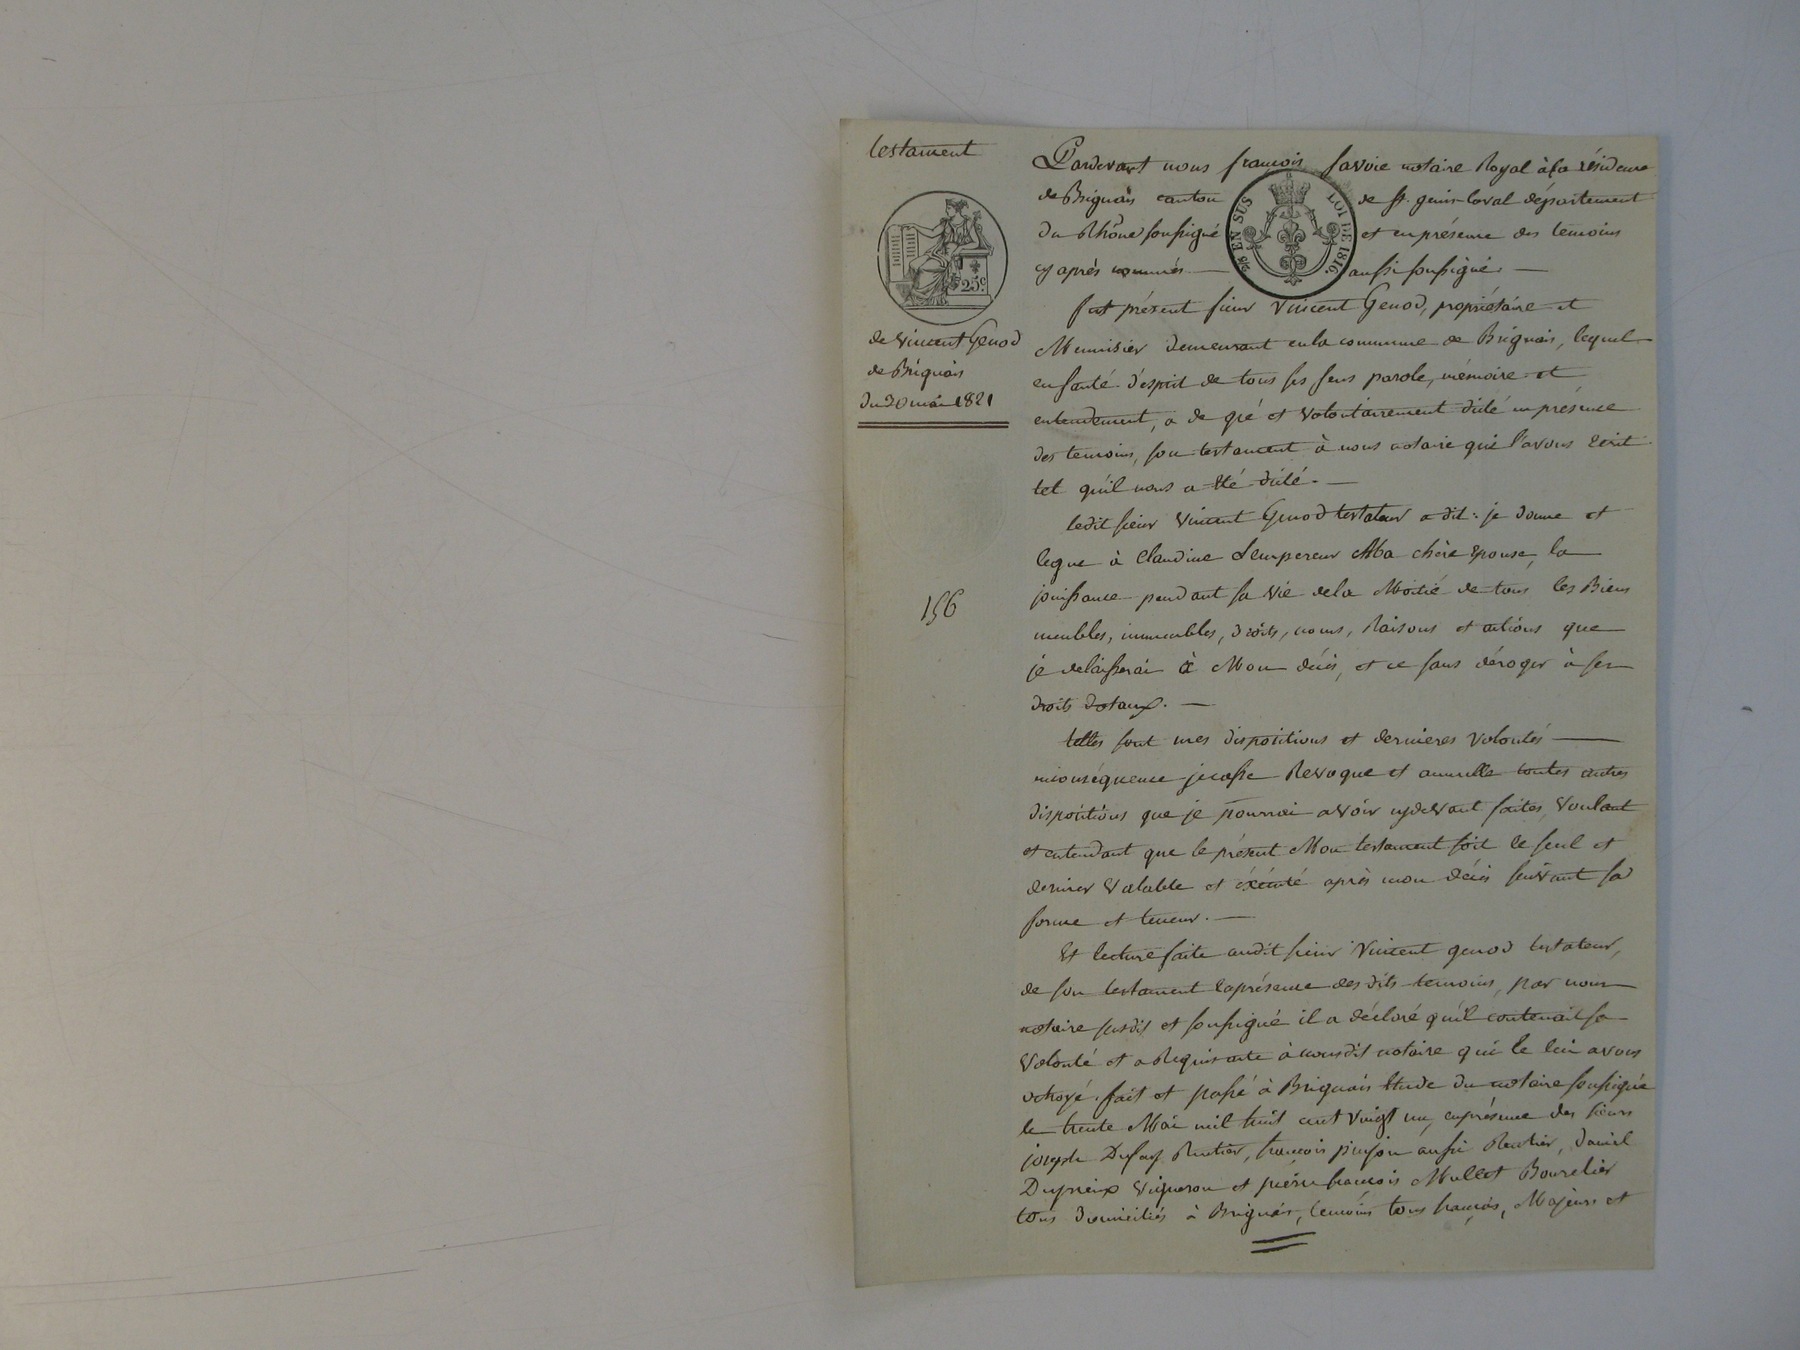 testament
25c
de Vincent Genod
de Brignais
du 30 mai 1821
156
Pardevant nous françois Savoie notaire Royal à la résidence
de Brignais canton de St. genis-Laval département
du Rhône soussigné et en présence des temoins
cy après nommés. — aussi soussignés. —
EN SUS LOI DE 1816.
fut présent sieur Vincent Genod, propriétaire et
Menuisier demeurant en la commune de Brignais, lequel
en santé d'esprit de tous ses sens parole, mémoire et
entendement, a de gré et volontairement dicté en présence
des temoins, son testament à nous notaire qui l'avons écrit
tel qu'il nous a été dicté. —
ledit sieur Vincent Genod testateur a dit: je donne et
legue à Claudine Lempereur Ma chère épouse, la
jouissance pendant sa vie de la Moitié de tous les Biens
meubles, immeubles, droits, noms, Raisons et actions que
je delaisserai à Mon décès, et ce sans déroger à ses
droits dotaux. —
telles sont mes dispositions et dernieres volontés —
en conséquence je casse Revoque et annulle toutes autres
dispositions que je pourrai avoir cydevant faites, voulant
et entendant que le présent Mon testament soit le seul et
dernier valable et éxécuté après mon décès suivant sa
forme et teneur. —
Et lecture faite audit sieur Vincent genod testateur,
de son testament en présence desdits temoins, par nous
notaire susdit et soussigné il a déclaré qu'il contenait sa
volonté et a Requis acte à nousdit notaire qui le lui avons
octroyé. fait et passé à Brignais Etude du notaire soussigné
le trente Mai mil huit cent vingt un, en présence des sieurs
joseph Dufay Rentier, françois pinson aussi Rentier, daniel
Duprieux vigneron et pierre françois Mullet Bourelier
tous domiciliés à Brignais, temoins tous français, Majeurs et